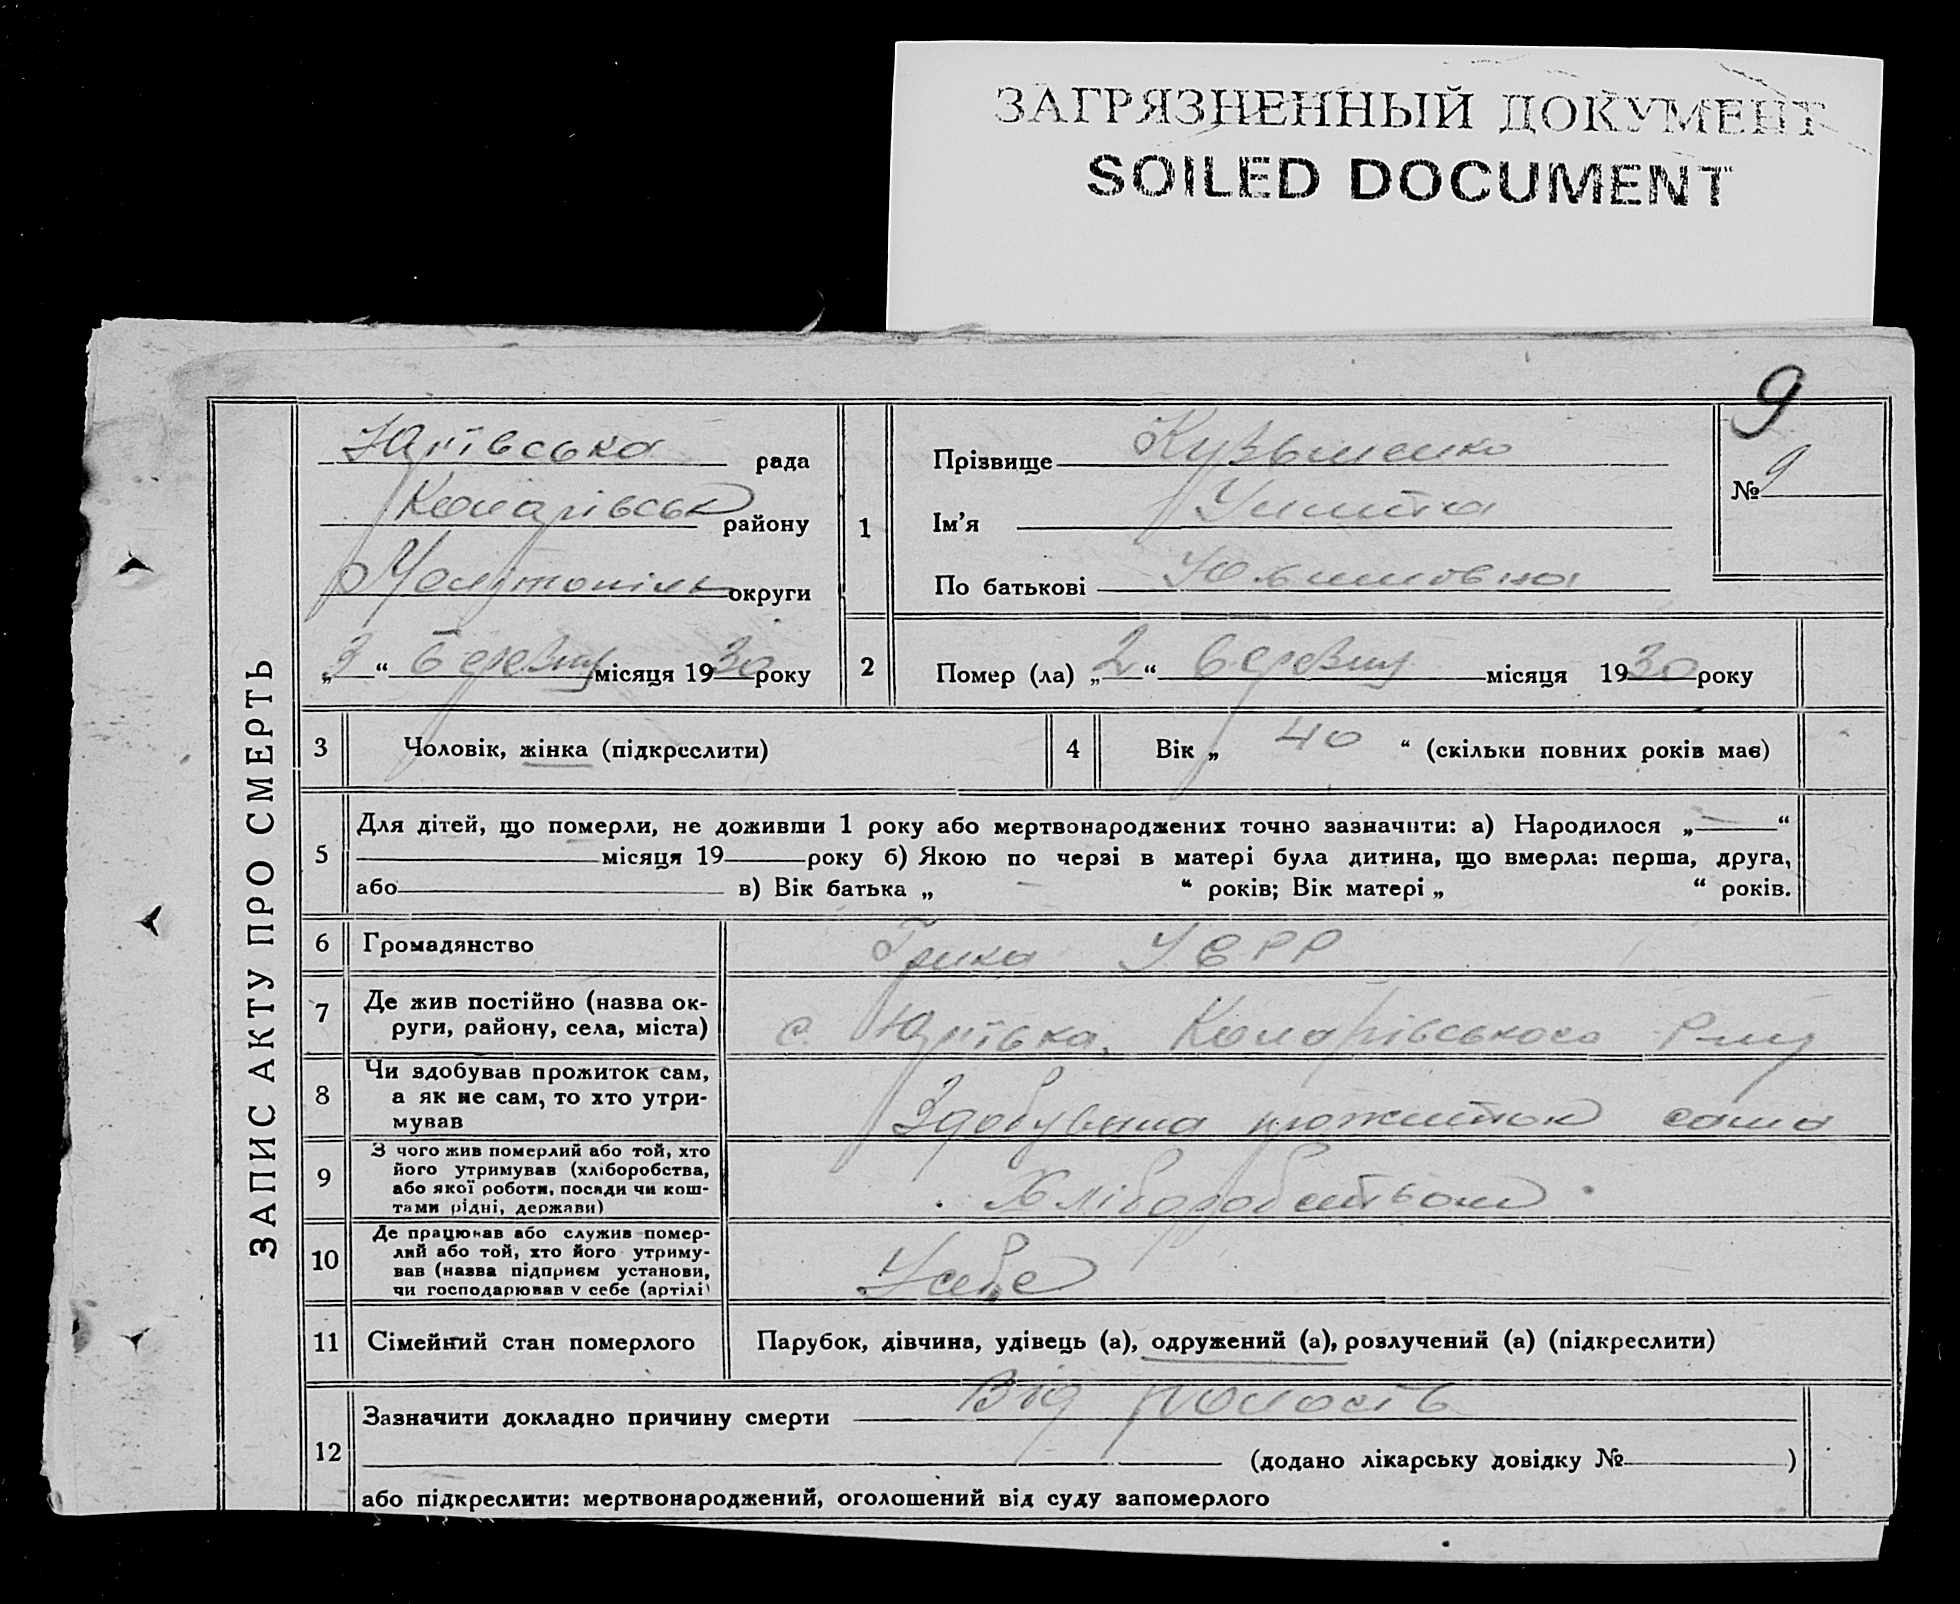 ЗАГРЯЗНЕННЫЙ ДОКУМЕНТ
SOILED DOCUMENT
9
ЗАПИС АКТУ ПРО СМЕРТЬ
Юрївська рада
район
округи
„3“ березня місяця 1930 року
1
Прізвище Кузьменко
Ім'я
По батькові
№ 9
2
Помер (ла) „2“ березня місяця 1930 року
3 Чоловік, жінка (підкреслити)
4 Вік „ 40 “ (скільки повних років має)
5 Для дітей, що померли, не доживши 1 року або мертвонароджених точно зазначити: а) Народилося „ “
місяця 19 року б) Якою по черзі в матері була дитина, що вмерла: перша, друга,
або в) Вік батька „ “ років; Вік матері „ “ років.
6 Громадянство
УСРР
7 Де жив постійно (назва ок-
руги, району, села, міста)
с. Юрївка,
8 Чи здобував прожиток сам,
а як не сам, то хто утри-
мував
Здобувала прожиток сама
9 З чого жив померлий або той, хто
його утримував (хліборобства,
або якої роботи, посади чи кош-
тами рідні, держави)
Хліборобством
10 Де працював або служив помер-
лий або той, хто його утриму-
вав (назва підприєм установи,
чи господарював у себе (артілі)
У себе
11 Сімейний стан померлого
Парубок, дівчина, удівець (а), одружений (а), розлучений (а) (підкреслити)
12 Зазначити докладно причину смерти Від
(додано лікарську довідку № )
або підкреслити: мертвонароджений, оголошений від суду запомерлого